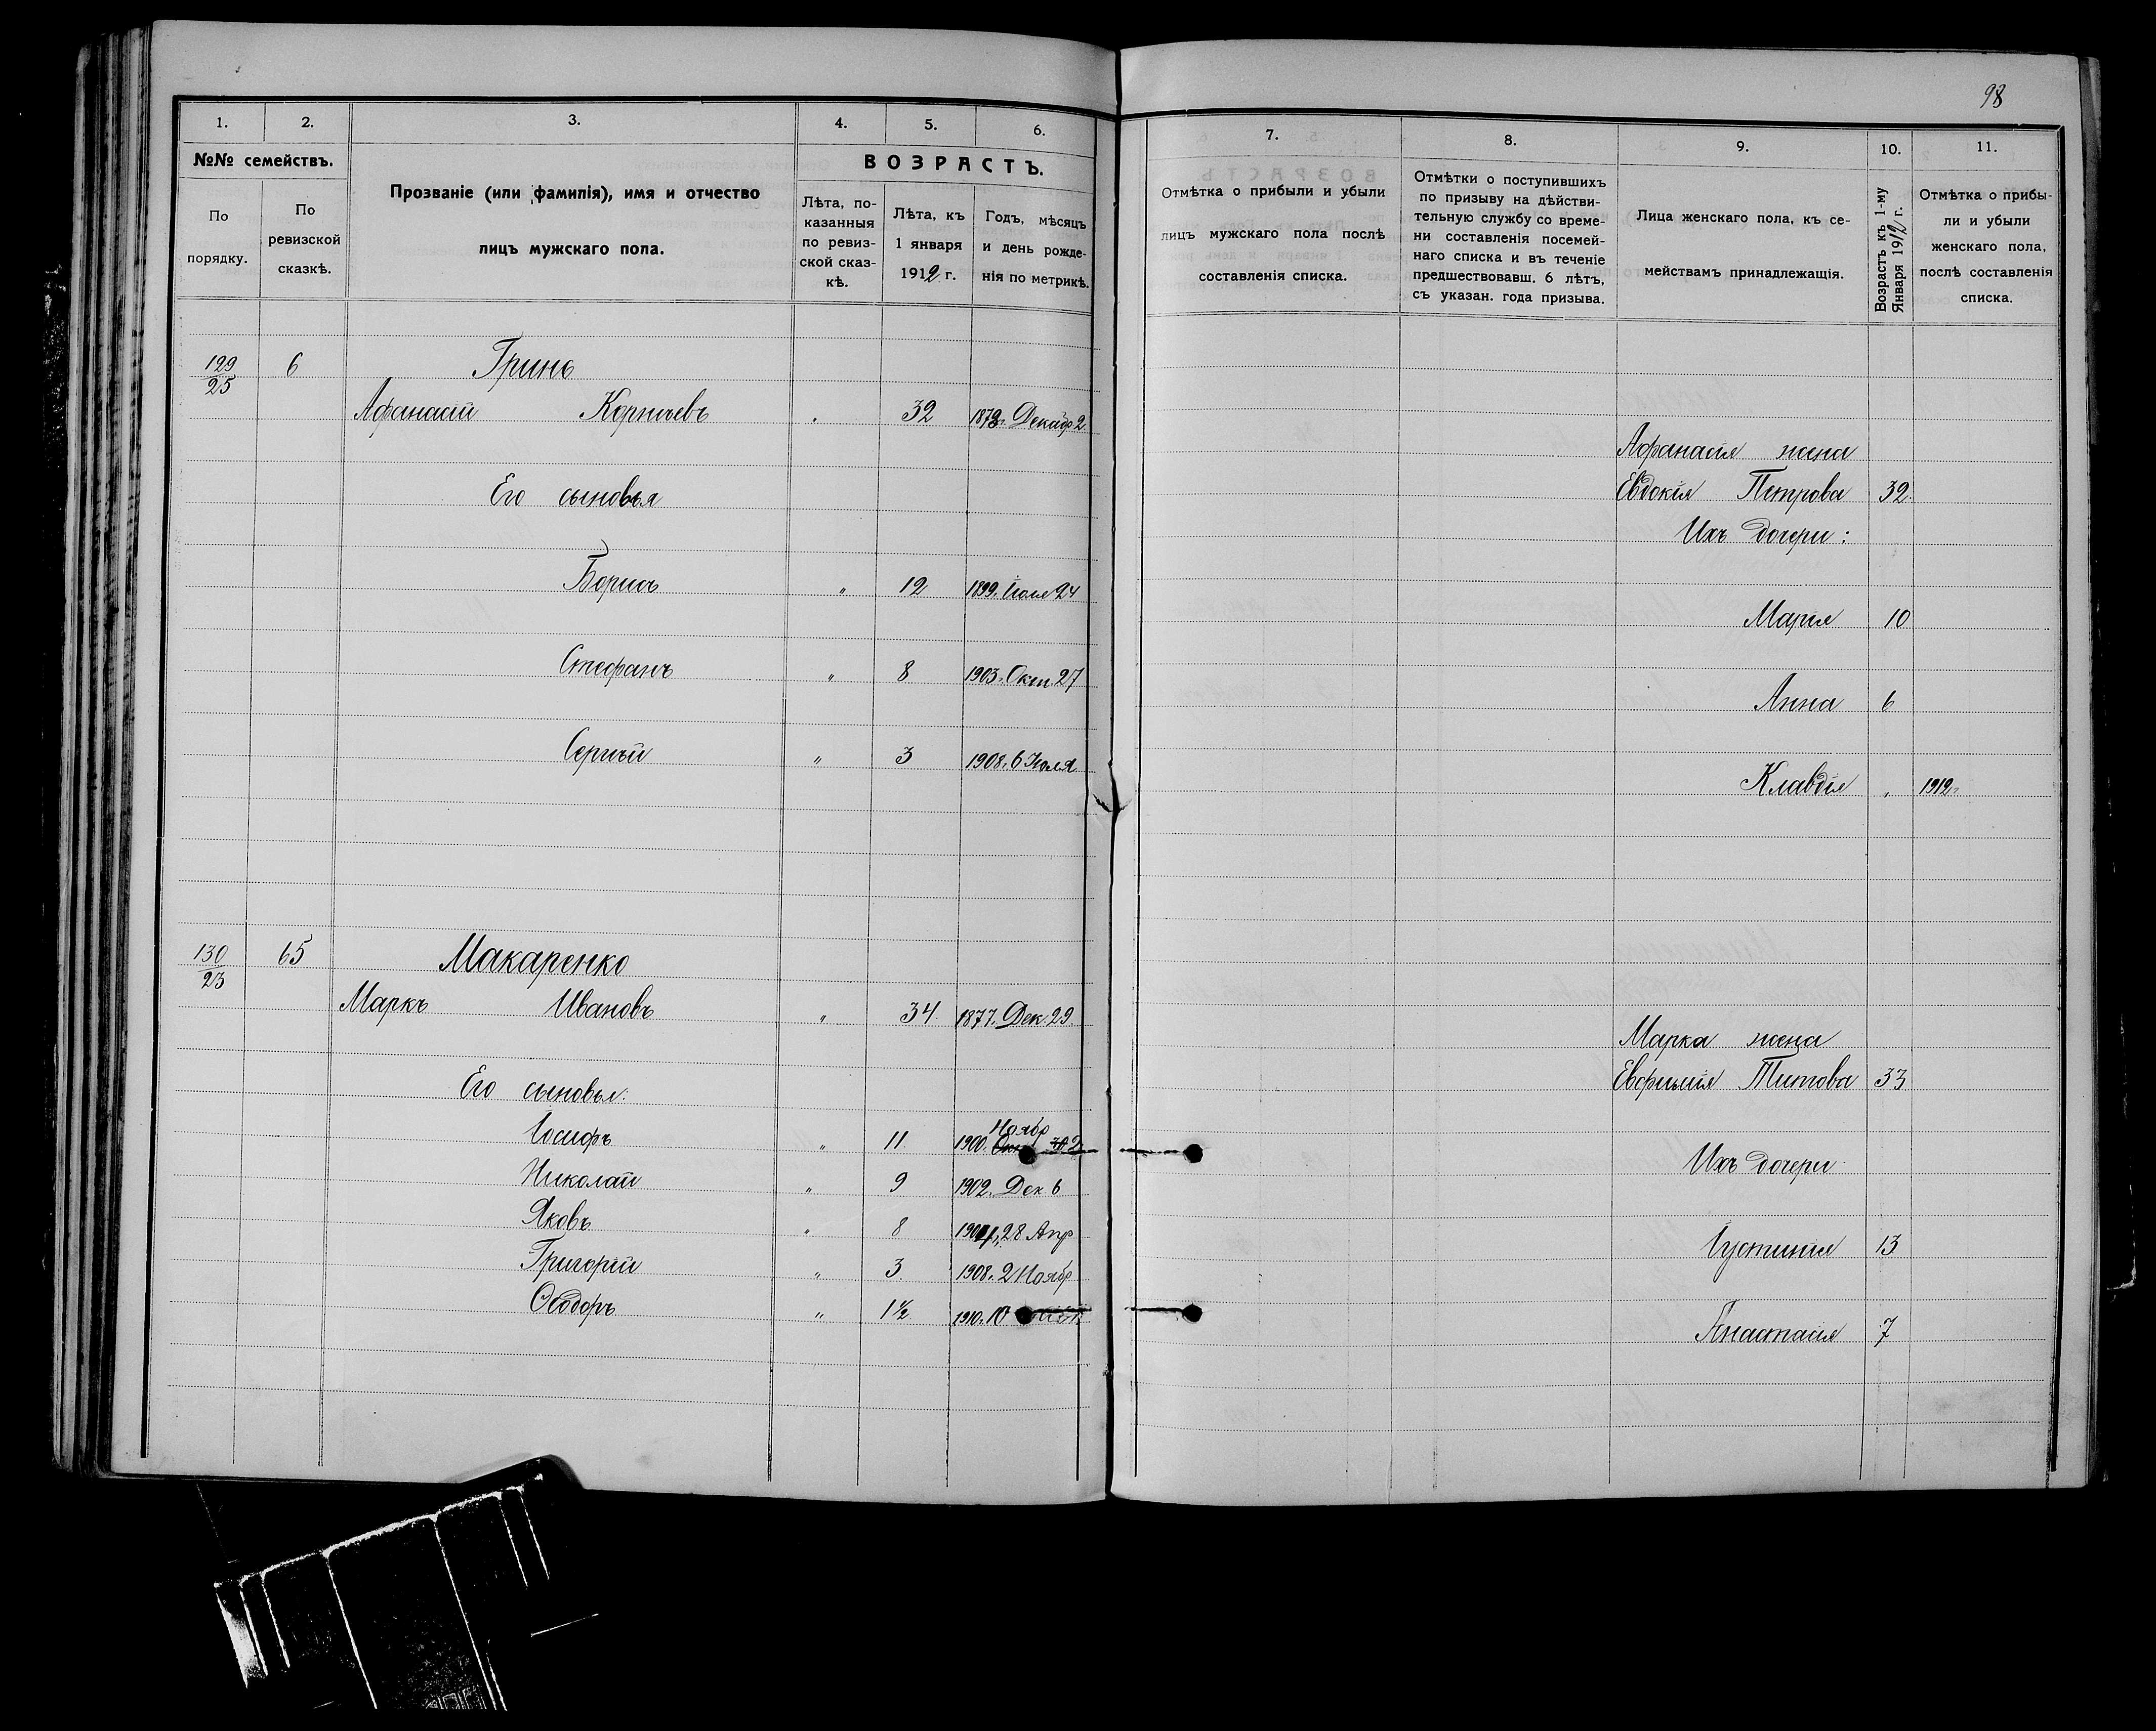 98
1. 2. 3. 4. 5. 6.
№№ семействъ.
По порядку.
По ревизской сказкѣ.
Прозваніе (или фамилія), имя и отчество
лицъ мужскаго пола.
ВОЗРАСТЪ.
Лѣта, по-
казанныя
по ревиз-
ской сказ-
кѣ.
Лѣта, къ
1 января
1912 г.
Годъ, мѣсяцъ
и день рожде-
нія по метрикѣ.
129/25 6 Гринь
Афанасій Корнѣевъ 32 Декабр 2
Его сыновья
Борисъ " 12 1899. Іюля 24
Стефанъ " 8 1903. Окт. 27
Сергѣй " 3 1908. 6 Іюля
130/23 65 Макаренко
Маркъ Ивановъ " 34 1877. Дек. 29.
Его сыновья:
Іосифъ " 11 1900. Ноябр 2
Николай " 9 1902. Дек 6
Яковъ " 8 1904, 28 Апр
Григорій " 3 1908. 2 Ноябр
Ѳеодоръ " 1½ 1910. 10
7. 8. 9. 10. 11.
Отмѣтка о прибыли и убыли
лицъ мужскаго пола послѣ
составленія списка.
Отмѣтки о поступившихъ
по призыву на дѣйстви-
тельную службу со време-
ни составленія посемей-
наго списка и въ теченіе
предшествовавш. 6 лѣтъ,
съ указан. года призыва.
Лица женскаго пола, къ се-
мействамъ принадлежащія.
Возрастъ къ 1-му
Января 1912 г.
Отмѣтка о прибы-
ли и убыли
женскаго пола,
послѣ составленія
списка.
Афанасія жена
Евдокія Петрова 32.
Ихъ дочери:
Марія 10
Анна 6
Клавдія " 1912.
Марка жена
Евфимія Титова 33
Ихъ дочери
Іустинія 13
Анастасія 7